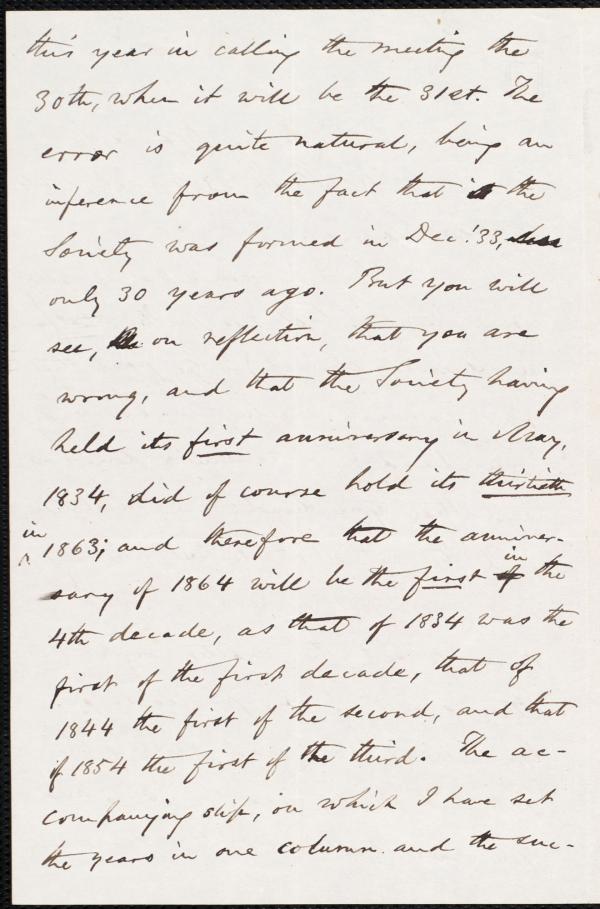 this year in calling the meeting the
30th, when it will be the 31st. The
error is quite natural, being an
inference from the fact that the
Society was formed in Dec. '33,
only 30 years ago. But you will
see, on reflection, that you are
wrong, and that the Society having
held its first anniversary in May,
1834, did of course hold its thirtieth
in 1863; and therefore that the anniver-
sary of 1864 will be the first in the
4th decade, as that of 1834 was the
first of the first decade, that of
1844 the first of the second, and that
of 1854 the first of the third. The ac-
companying slip, on which I have set
the years in one column and the suc-